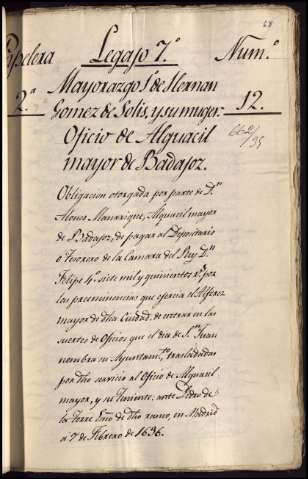 68
Papelera Legajo 7.º Num.º
2.ª Mayorazgo 1.º de Hernan 12.
Gomez de Solis, y su muger.
Oficio de Alguacil
mayor de Badajoz.
662/35
Obligacion otorgada por parte de D.n
Alonso Manrrique, Alguacil mayor
de Badajoz, de pagar al Depositario
o Tesorero de la Camara del Rey D.n
Felipe 4.º siete mil y quinientos r.s por
las preeminencias que ofrecia el Alferez
mayor de dha Ciudad, de entrar en las
suertes de Oficios que el dia de S.n Juan
nombra su Ayuntam.to, trasladadas
por dho servicio al Oficio de Alguacil
mayor, y su Teniente, ante Pedro de
los Torre Esno de dho numo, en Madrid
a 7 de Febrero de 1636.